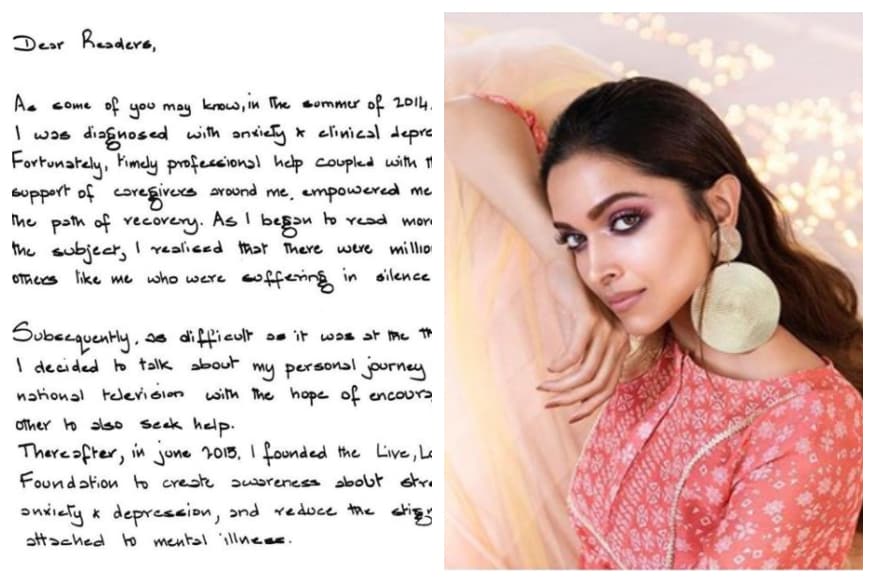 Dear Readers,
As some of you may know, in the summer of 2014.
I was diagnosed with anxiety & clinical depre
Fortunately, timely professional help coupled with t
support of caregivers around me, empowered me
the path of recovery. As I began to read mor
the subject, I realised that there were millio
others like me who were suffering in silence
Subsequently, as difficult as it was at the t
I decided to talk about my personal journey
national television with the hope of encoura
other to also seek help.
Thereafter, in june 2015, I founded the Live, L
Foundation to create awareness about stre
anxiety & depression, and reduce the stig
attached to mental illness.